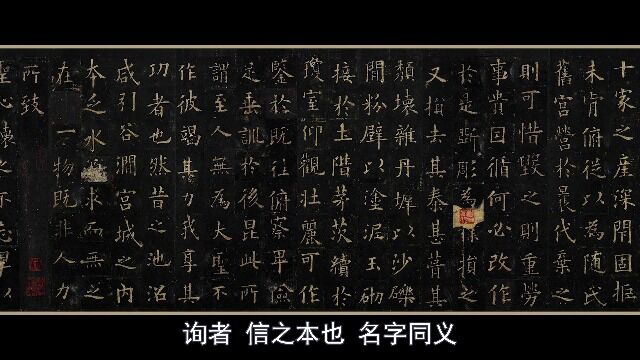 十家之產深閇固拒
未肯俯從以為隨氏
舊宮營於曩代棄之
則可惜毀之則重勞
事貴因循何必改作
於是斲彫為樸損之
又損去其泰甚葺其
頹壞雜丹墀以沙礫
間粉壁以塗泥玉砌
接於土階茅茨續於
瓊室仰觀壯麗可作
鑒於既往俯察卑儉
足垂訓於後昆此所
謂至人無為大聖不
作彼竭其力我享其
功者也然昔之池沼
咸引谷澗宮城之內
本乏水源求而無之
在乎一物既非人力
所致
聖心懷之不忘粵以
询者 信之本也 名字同义